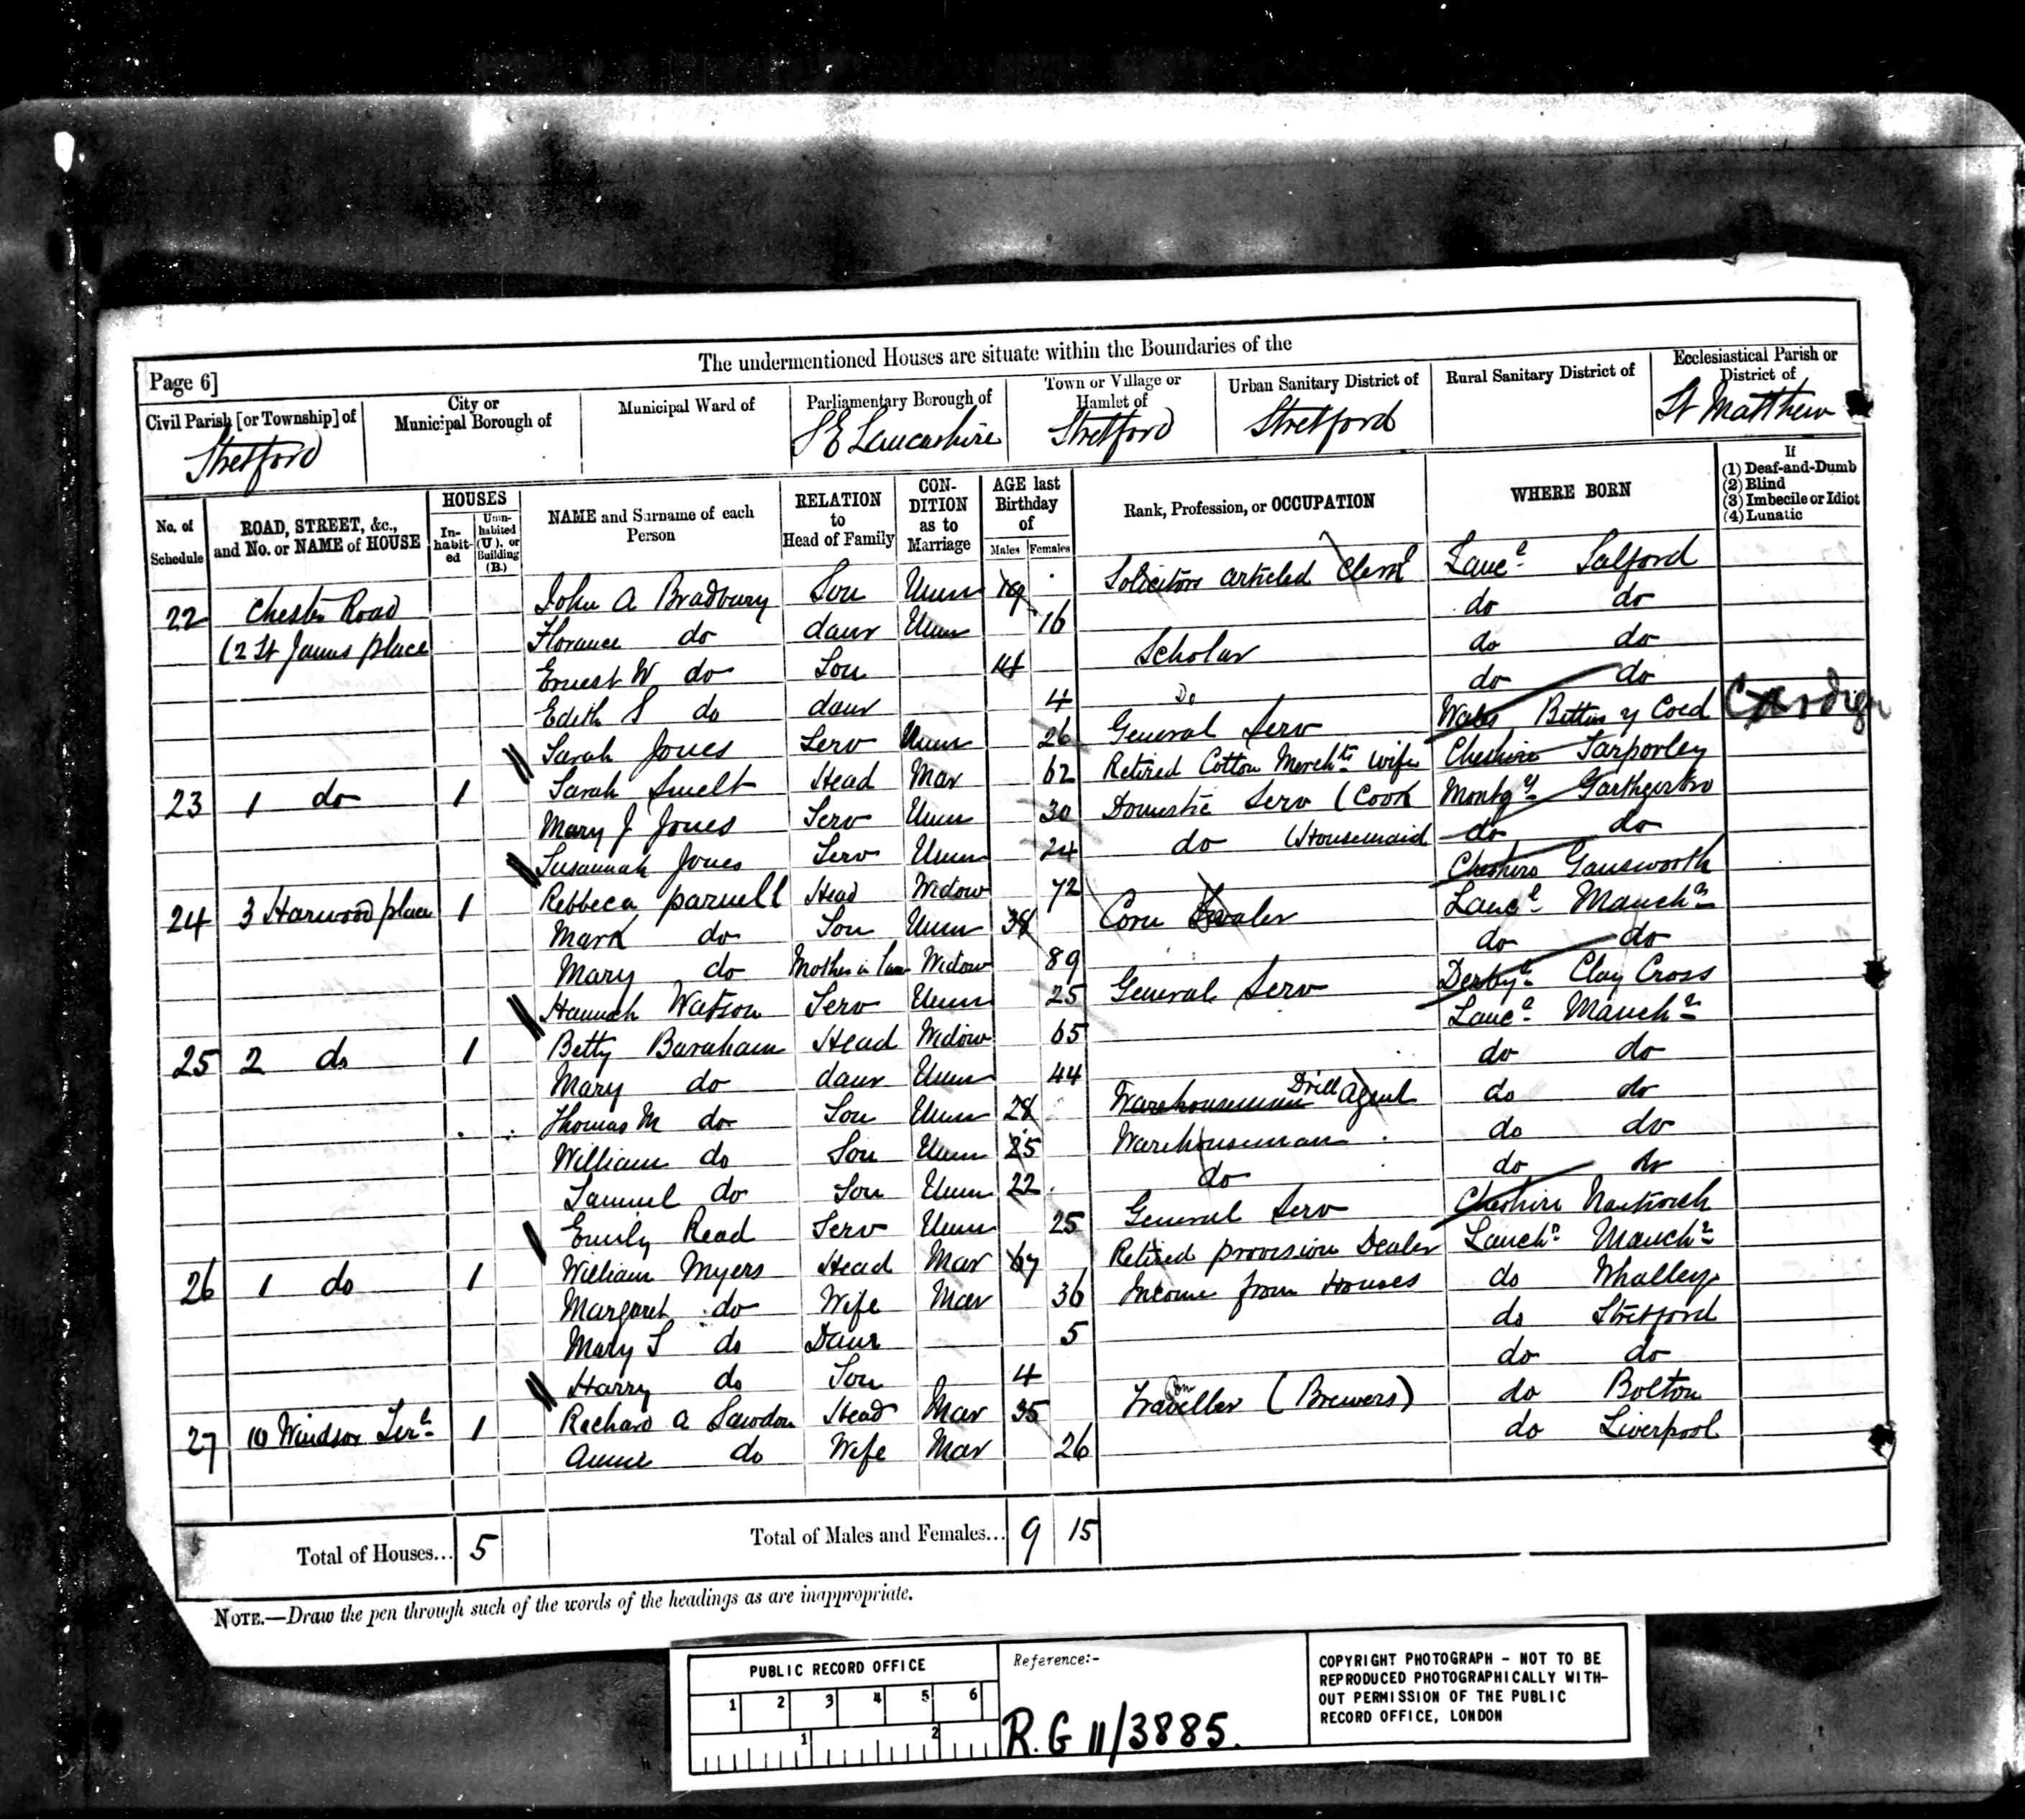 The undermentioned Houses are situate within the Boundaries of the
Page 6]
Civil Parish [or Township] of
Stretford
City or Municipal Borough of
Municipal Ward of
Parliamentary Borough of
S E Lancashire
Town or Village or Hamlet of
Stretford
Urban Sanitary District of
Stretford
Rural Sanitary District of
Ecclesiastical Parish or District of
St Matthew
No. of Schedule
ROAD, STREET, &c., and No. or NAME of HOUSE
HOUSES
In-habit-ed
Unin-habited (U), or Building (B.)
NAME and Surname of each Person
RELATION to Head of Family
CON-DITION as to Marriage
AGE last Birthday of
Males Females
Rank, Profession, or OCCUPATION
WHERE BORN
If
(1) Deaf-and-Dumb
(2) Blind
(3) Imbecile or Idiot
(4) Lunatic
22 Chester Road John A Bradbury Son Unm 19 Solicitors articled Clerk Lanc^e Salford
(2 St James place Florance do daur Unm 16 do do
Ernest W do Son 14 Scholar do do
Edith S do daur 4 Do do do
Sarah Jones Serv Unm 26 General Serv Wales Bettws y Coed Cardign
23 1 do 1 Sarah Smelt Head Mar 62 Retired Cotton Merchts wife Cheshire Tarporley
Mary J Jones Serv Unm 30 Domestic Serv (Cook Montgy
Susannah Jones Serv Unm 24 do (Housemaid do do
24 3 Harwood place 1 Rebbeca parnell Head Widow 72 Cheshire Gausworth
Mark do Son Unm 38 Corn Dealer Lanc^e Manch^r
Mary do Mother in law Widow 89 do do
Hannah Watson Serv Unm 25 General Serv Derby^e Clay Cross
25 2 do 1 Betty Baraham Head Widow 65 Lanc^e Manch^r
Mary do daur Unm 44 do do
Thomas M do Son Unm 28 Warehouseman Drill Agent do do
William do Son Unm 25 Warehouseman do do
Samuel do Son Unm 22 do do do
Emily Read Serv Unm 25 General Serv Cheshire Nantwich
26 1 do 1 William Myers Head Mar 67 Retired provision Dealer Lanch^r Manch^r
Margaret do Wife Mar 36 Income from Houses do Whalley
Mary S do Daur 5 do Stretford
Harry do Son 4 do do
27 10 Windsor Ter^e 1 Richard A Sawdon Head Mar 35 Traveller (Brewers) do Bolton
Annie do Wife Mar 26 do Liverpool
Total of Houses... 5
Total of Males and Females... 9 15
NOTE.—Draw the pen through such of the words of the headings as are inappropriate.
PUBLIC RECORD OFFICE
1 2 3 4 5 6
1 2
Reference:-
R.G 11/3885.
COPYRIGHT PHOTOGRAPH - NOT TO BE
REPRODUCED PHOTOGRAPHICALLY WITH-
OUT PERMISSION OF THE PUBLIC
RECORD OFFICE, LONDON